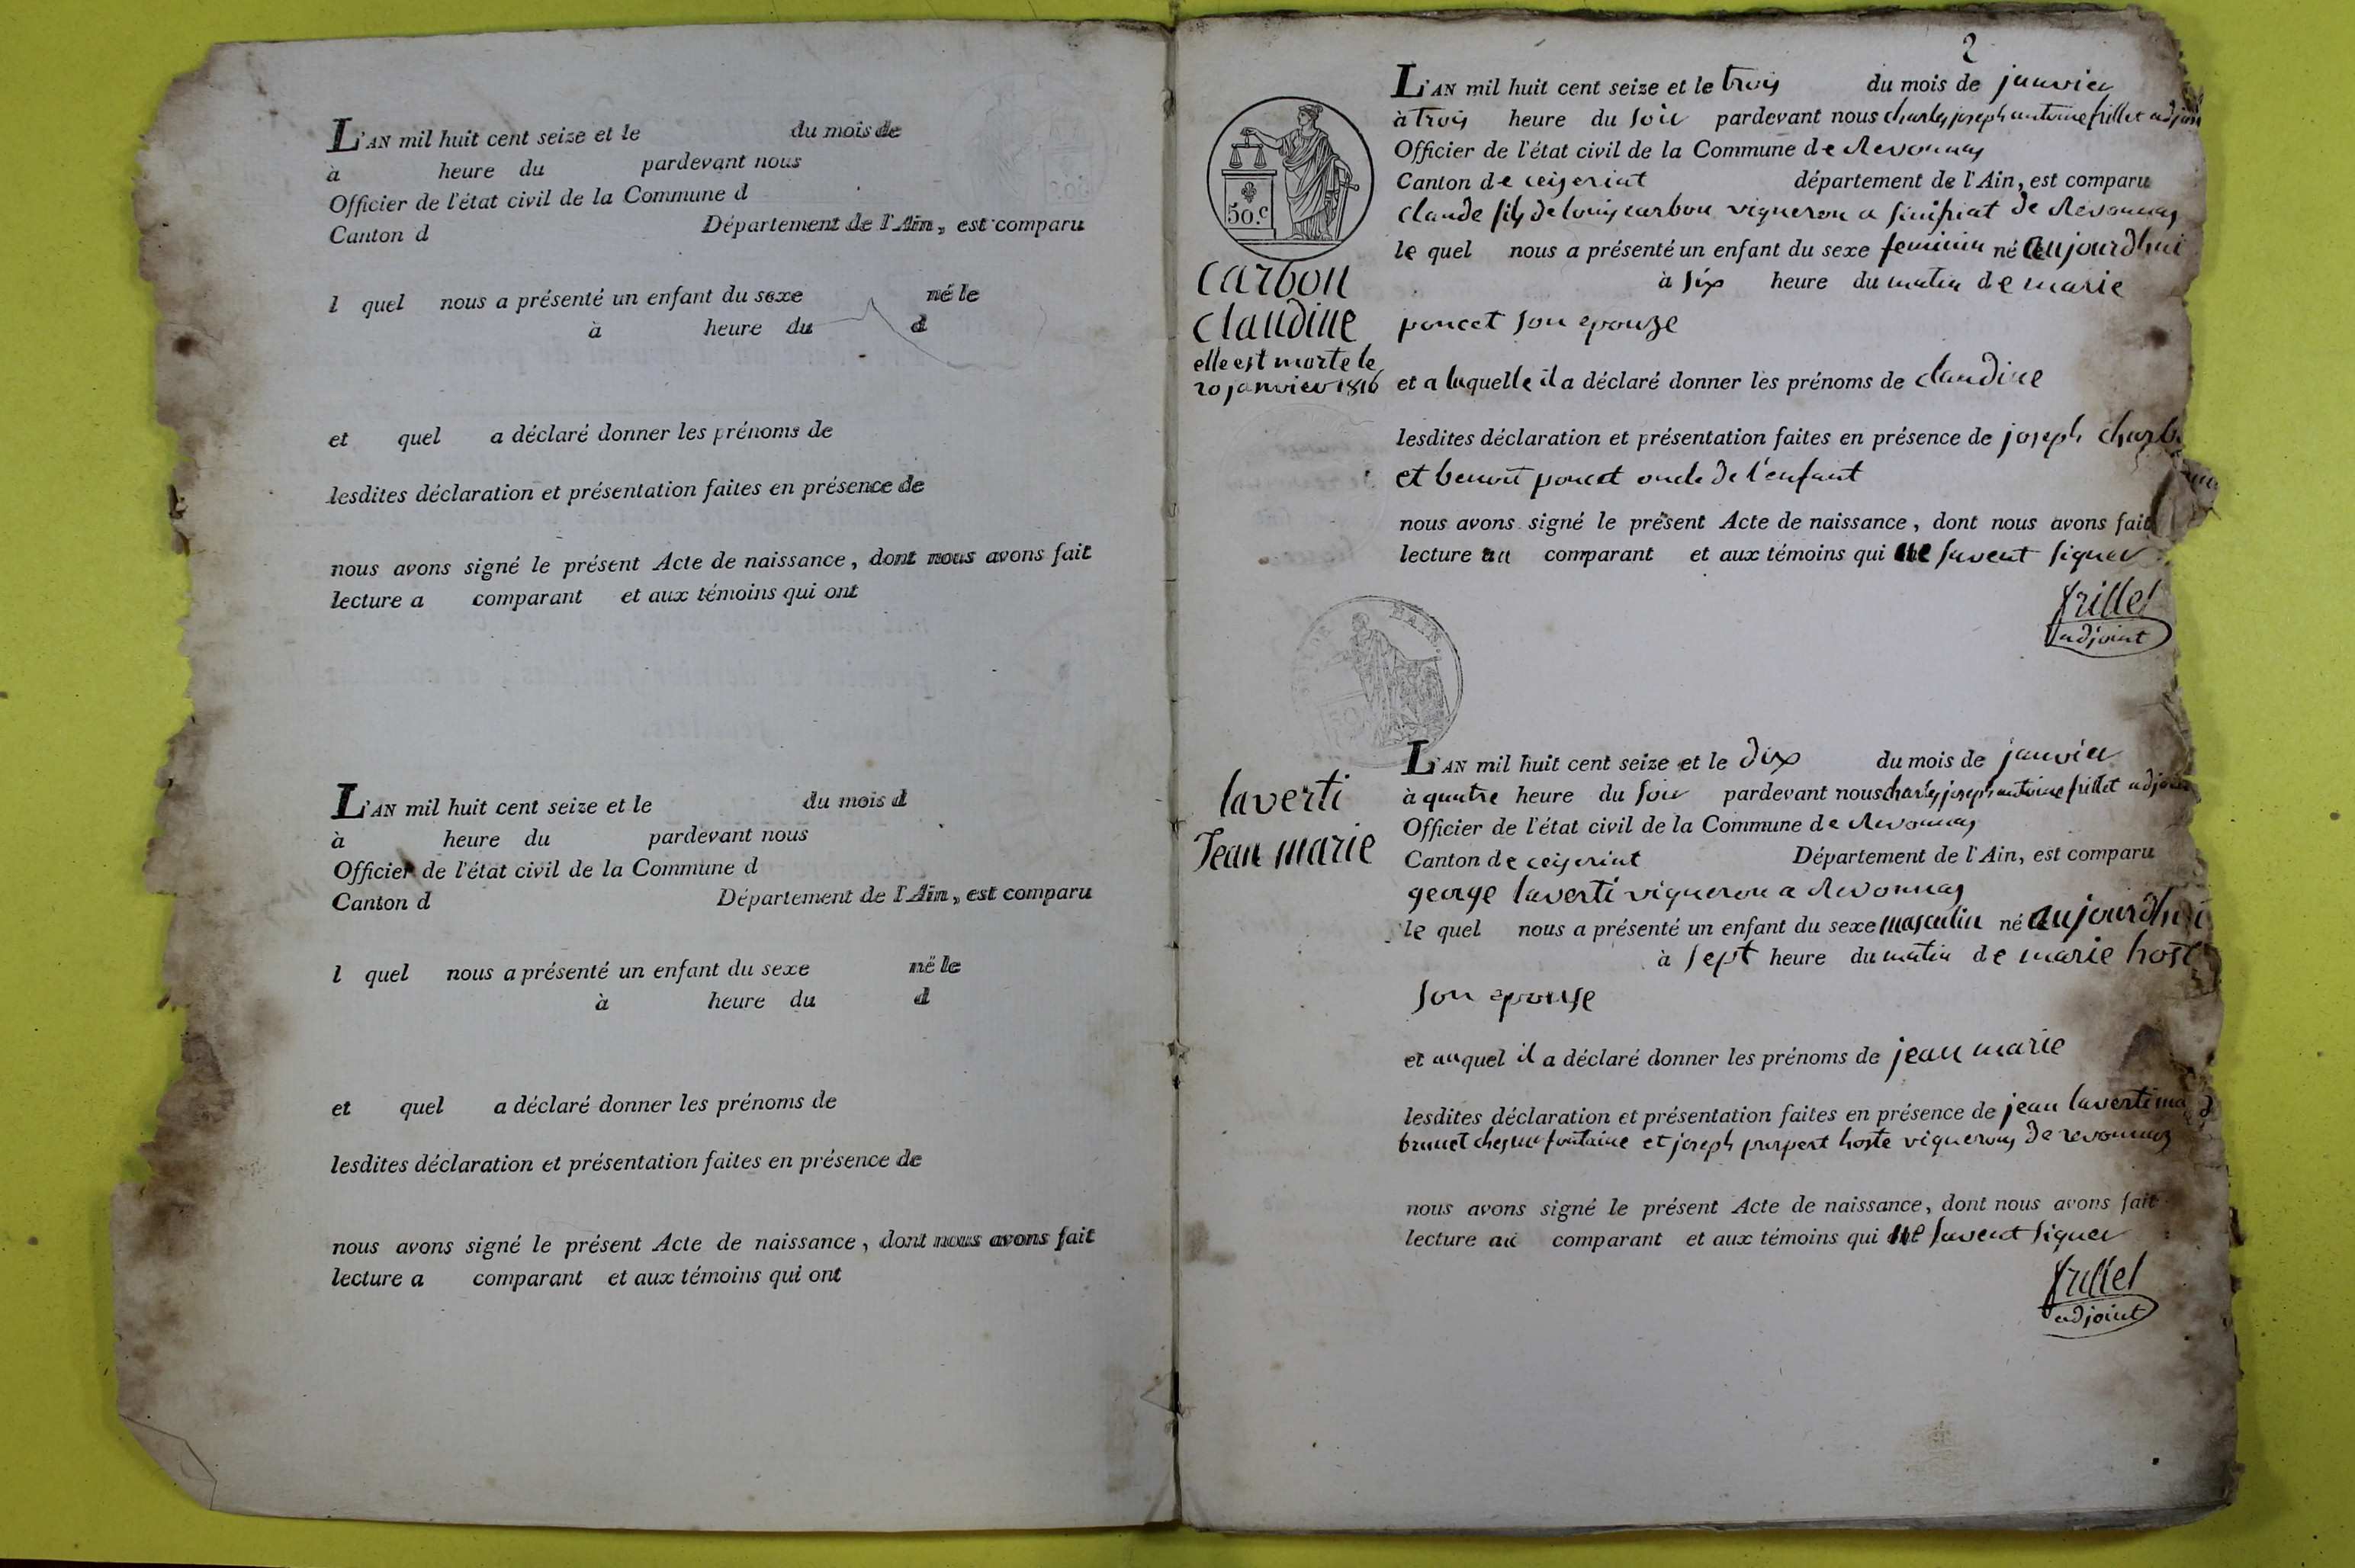 L'AN mil huit cent seize et le du mois de
à heure du pardevant nous
Officier de l'état civil de la Commune d
Canton d Département de l'Ain, est comparu
l quel nous a présenté un enfant du sexe né le
à heure du d
et quel a déclaré donner les prénoms de
lesdites déclaration et présentation faites en présence de
nous avons signé le présent Acte de naissance, dont nous avons fait
lecture a comparant et aux témoins qui ont
L'AN mil huit cent seize et le du mois d
à heure du pardevant nous
Officier de l'état civil de la Commune d
Canton d Département de l'Ain, est comparu
l quel nous a présenté un enfant du sexe né le
à heure du d
et quel a déclaré donner les prénoms de
lesdites déclaration et présentation faites en présence de
nous avons signé le présent Acte de naissance, dont nous avons fait
lecture a comparant et aux témoins qui ont
2
50.c
carbon
claudine
elle est morte le
20 janvier 1816
L'AN mil huit cent seize et le trois du mois de janvier
à trois heure du soir pardevant nous charles joseph antoine frillet adjoint
Officier de l'état civil de la Commune de Revonnas
Canton de ceiseriat département de l'Ain, est comparu
claude fils de louis carbon vigneron a senissiat de Revonnas
le quel nous a présenté un enfant du sexe feminin né aujourdhui
à six heure du matin de marie
poncet son epouze
et a laquelle il a déclaré donner les prénoms de claudine
lesdites déclaration et présentation faites en présence de joseph charb
et benoit poncet oncle de l'enfant
nous avons signé le présent Acte de naissance, dont nous avons fait
lecture au comparant et aux témoins qui ne savent signer
frillet
adjoint
laverti
Jean marie
L'AN mil huit cent seize et le dix du mois de janvier
à quatre heure du soir pardevant nous charles joseph antoine frillet adjoint
Officier de l'état civil de la Commune de Revonnas
Canton de ceiseriat Département de l'Ain, est comparu
george laverti vigneron a Revonnas
le quel nous a présenté un enfant du sexe masculin né aujourdhui
à sept heure du matin de marie hoste
son epouse
et auquel il a déclaré donner les prénoms de jean marie
lesdites déclaration et présentation faites en présence de jean laverti
brunet fontaine et joseph hoste vignerons de revonnas
nous avons signé le présent Acte de naissance, dont nous avons fait
lecture au comparant et aux témoins qui ne savent signer
frillet
adjoint